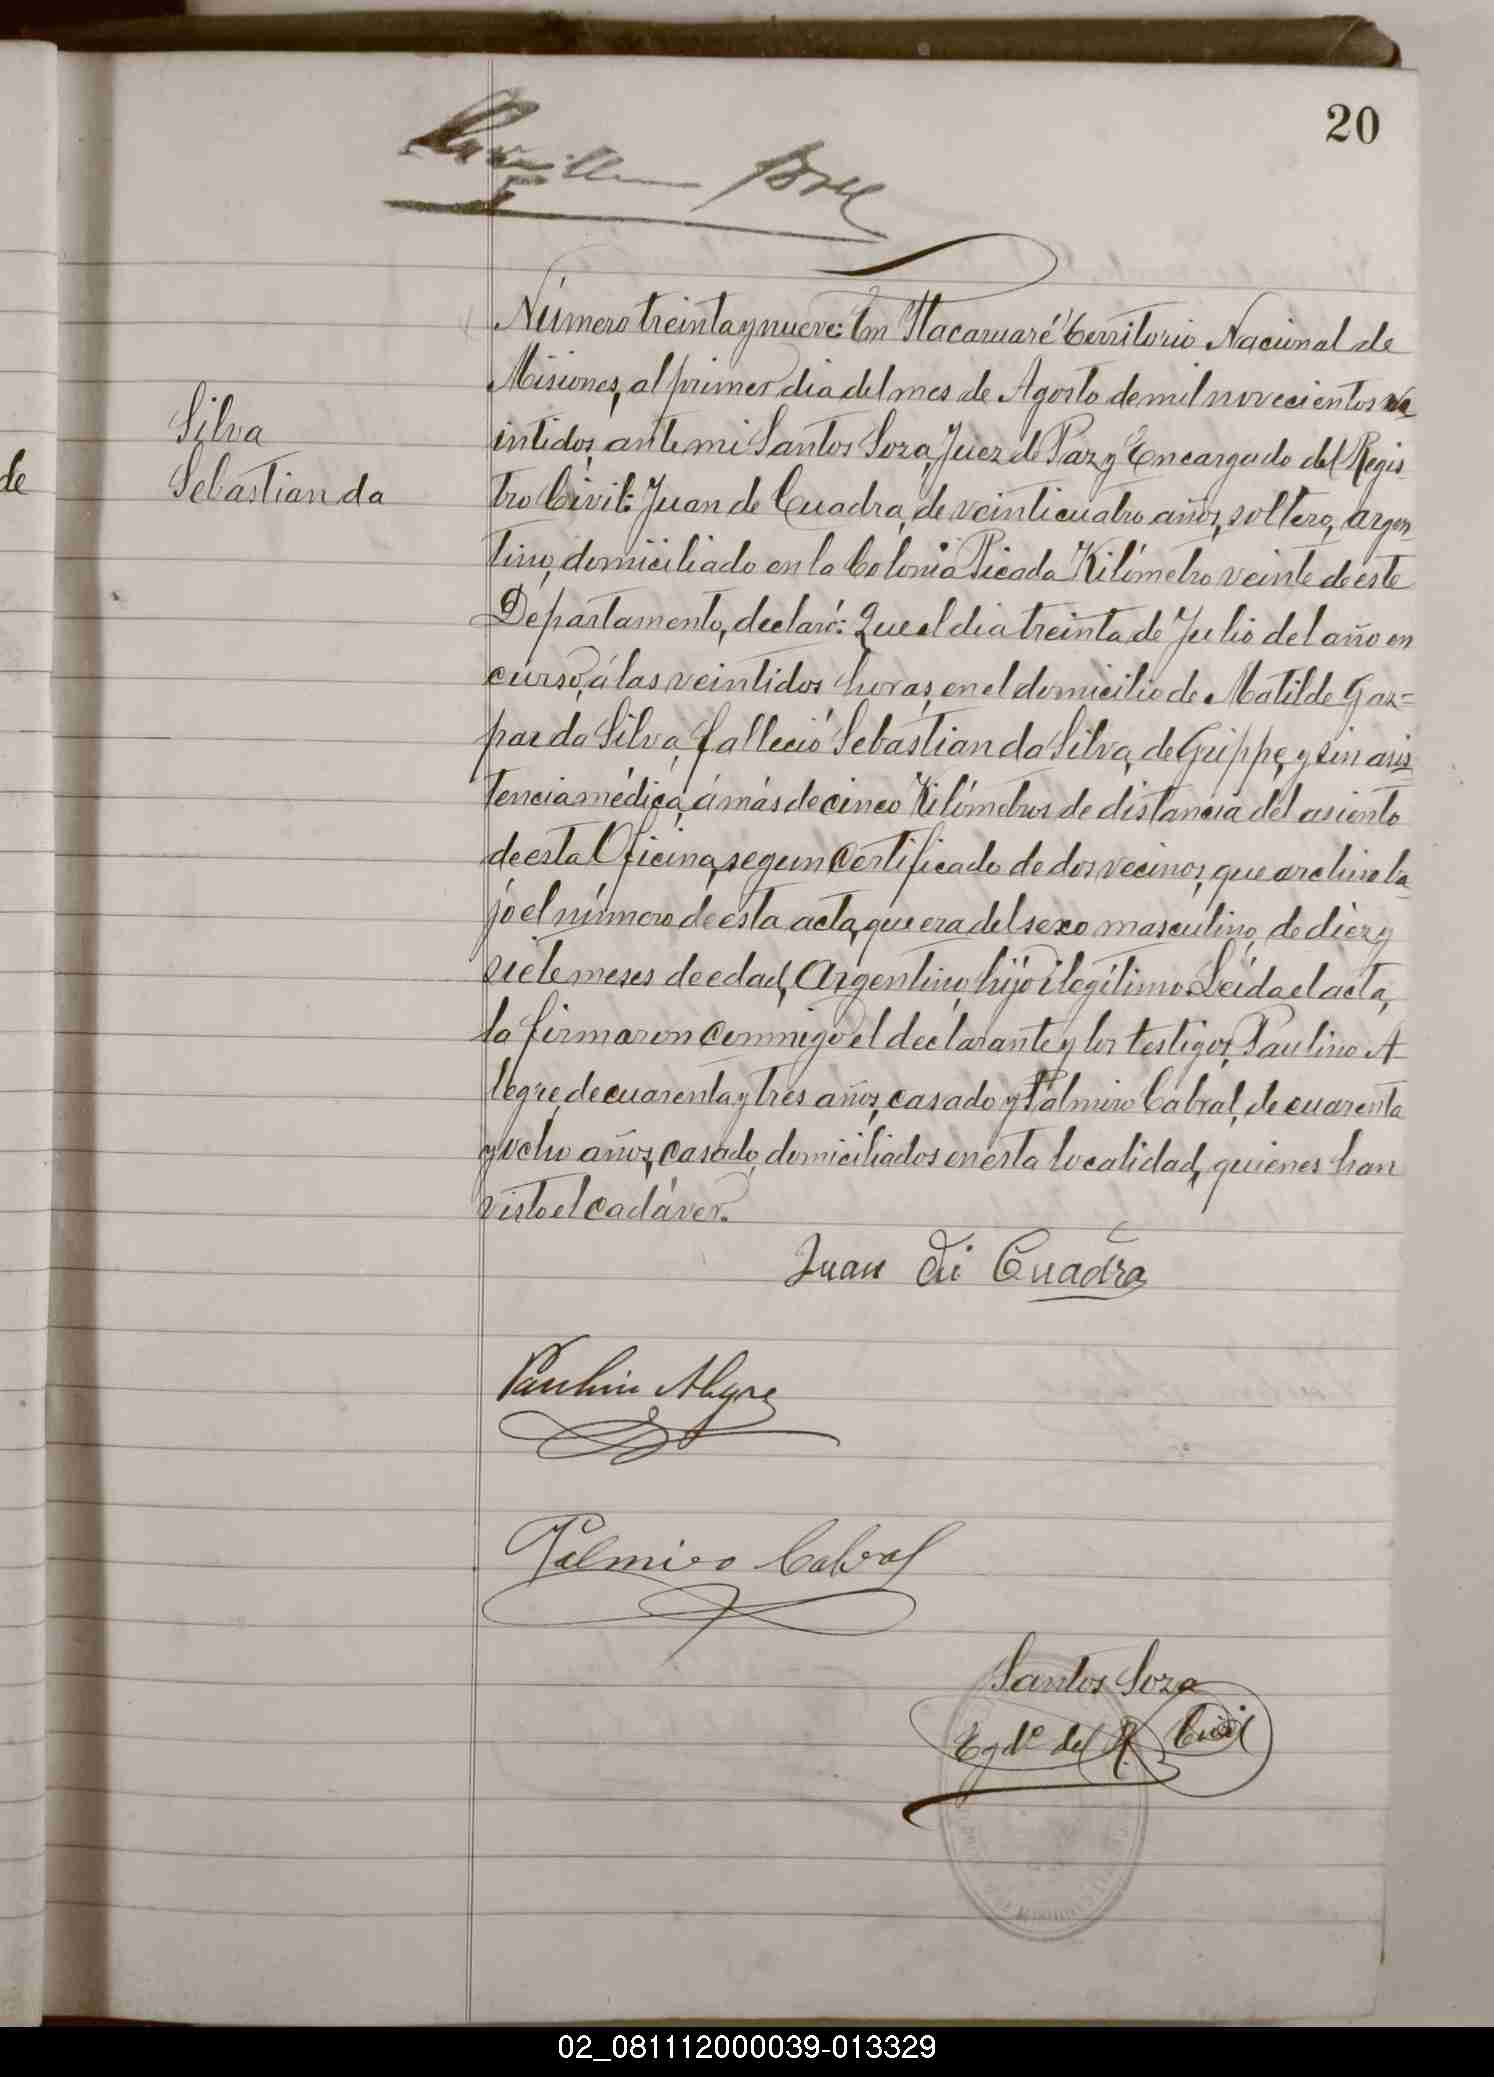 20
Número treinta y nueve: En Itacaruaré Territorio Nacional de
Misiones, al primer dia del mes de Agosto de mil novecientos ve
Silva
intidos, ante mi Santos Soza, Juez de Paz y Encargado del Regis
de
Sebastian da
tro Civil: Juan de Cuadra, de veinticuatro años, soltero, argen
tino, domiciliado en la Colonia Picada Kilómetro veinte de este
Departamento, declaró: Que el dia treinta de Julio del año en
curso, á las veintidos horas, en el domicilio de Matilde Gaz=
par da Silva, falleció Sebastian da Silva, de Grippe, y sin asis
tencia médica, á más de cinco Kilómetros de distancia del asiento
de esta Oficina, segun certificado de dos vecinos, que archivo ba
jo el número de esta acta, que era del sexo masculino, de diez y
siete meses de edad, Argentino, hijo ilegítimo. Leida el acta,
la firmaron conmigo el declarante y los testigos, Paulino A
legre, de cuarenta y tres años, casado y Palmiro Cabral, de cuarenta
y ocho años, casado, domiciliados en esta localidad, quienes han
visto el cadáver.
Juan di Cuadra
Paulino Alegre
Palmiro Cabral
Santos Soza
Egdo del R. Civil
02_081112000039-013329